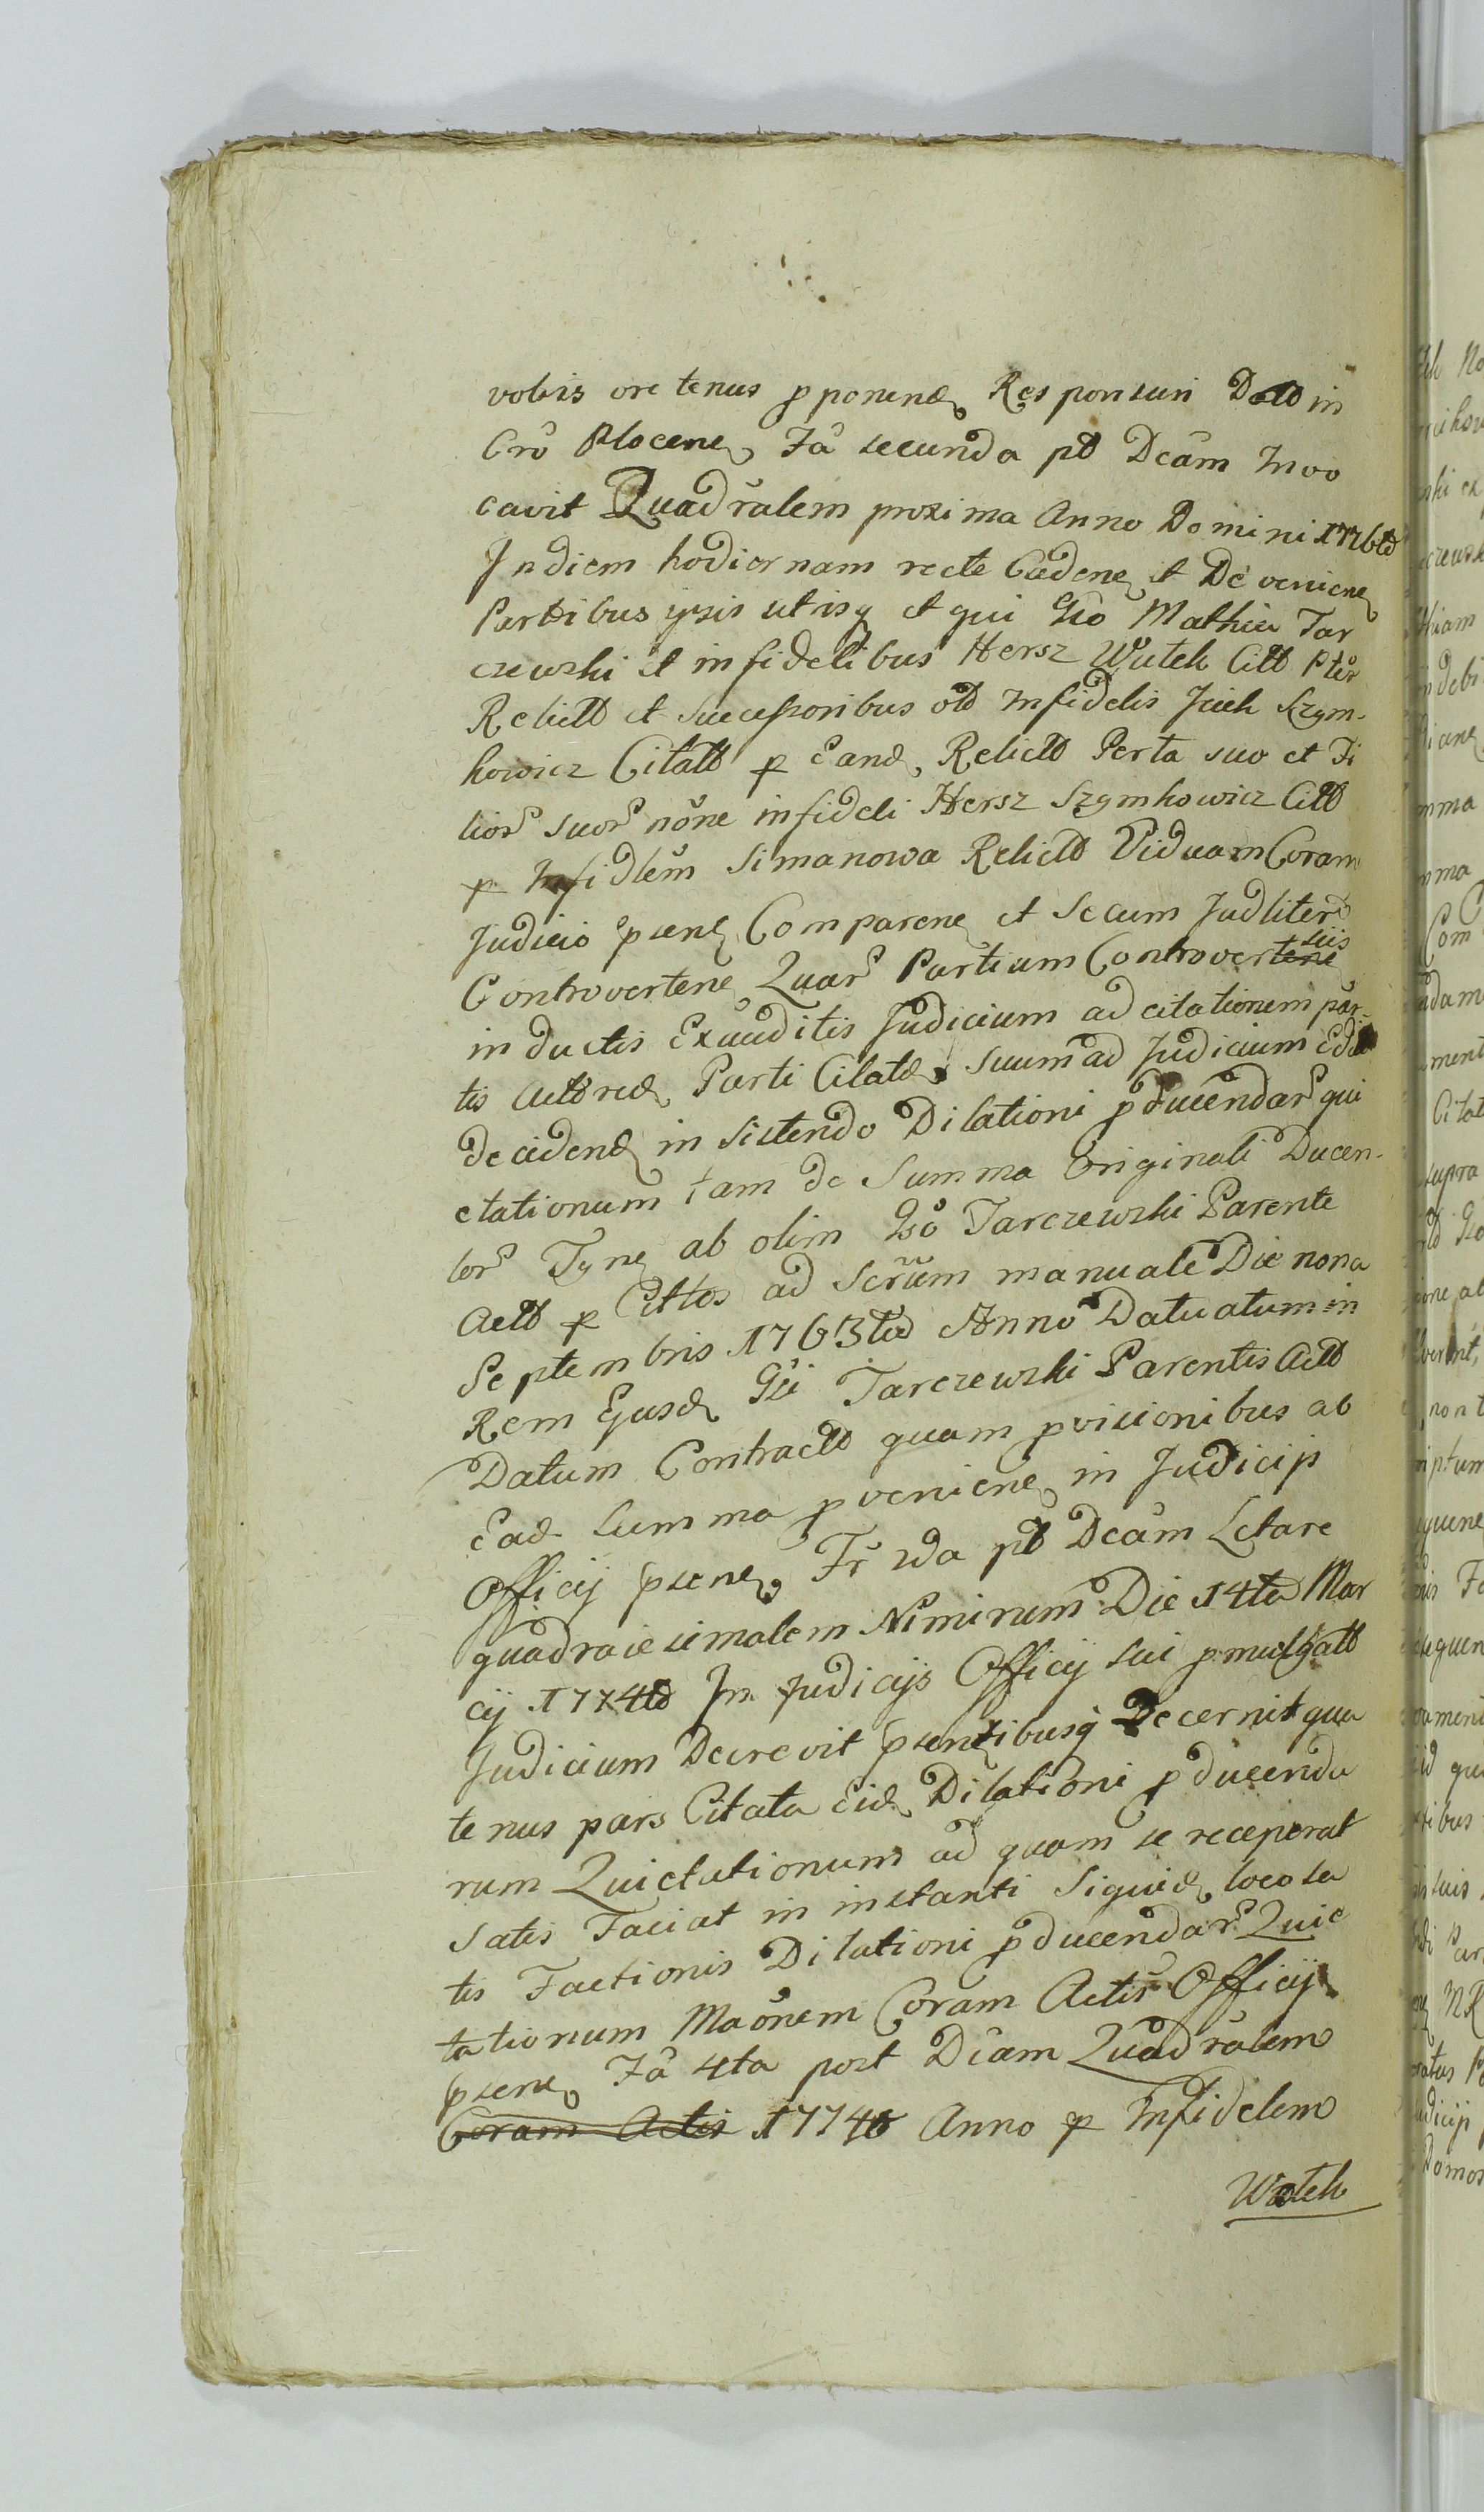 vobis ore tenus pponend Responsuri Datt in
Cro Plocene, Fa secunda pt Dcam Invo
cavit Quadralem proxima Anno Domini 1776to
In diem hodiernam recte Cadene et De veniene
Partibus ipsis utisq et qui Gso Mathia Tar
czewski et infidelibus Hersz Wutek Citt Pter
Relictt et Successoribus olt Infidelis Jcek Szym-
kowicz Citatt p Eand, Relictt Perta suo et Fi
lior suor noĩne infideli Hersz Szymkowicz Citt
p Infidlem Simanowa Relictt Viduam Coram
Judicio psene Comparene et Secum Judliter
Controvertene Quar Partium Controversiis
in ductis Exauditis Judicium ad citationem par-
tis Acttred, Parti Citate suum ad Judicium Edit
decidend in sistendo Dilationi pducendar qui
ctationum tam de Summa Originali Ducen-
tor Tyne ab olim Gso Tarczewski Parente
Actt p Cittos ad Scrum manuale Die nona
Septembris 1763tio Anno Datuatum in
Rem Ejusd Gsi Tarczewski Parentis Actt
Datum Contractt quam pvisionibus ab
Ead summa pveniene, in Judicip
Officij psene, Fr 2da pt Dcam Letare
quadraiesimalem Niminum Die 14ta Mar
cij 1774to In Judicijs Officij sui pmulgatt
Judicium Decrevit psentibusq Decernit qua
tenus pars Citata Eid, Dilationi pducenda
rum Quictationum ad quam se receperat
satis Faciat in instanti Siquid, loco sa
tis Factionis Dilationi pducendar Quic
tationum Maonem Coram Actis Officij
psene, Fa 4ta post Dcam Quadralem
Coram Actis 1774to Anno p Infidelem
Wutek